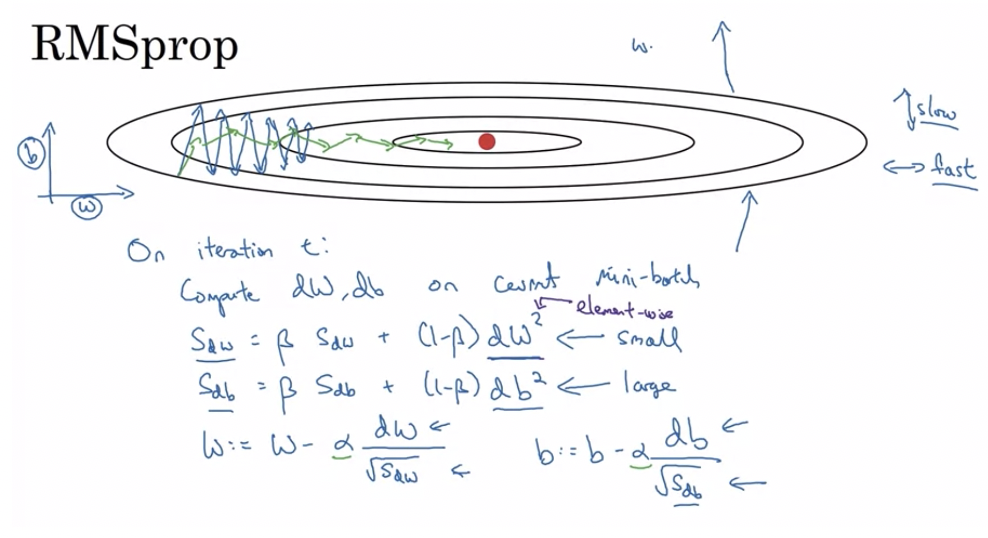 RMSprop
w.
b
w
slow
fast
On iteration t:
Compute dW, db on current mini-batch
element-wise
S_dw = β S_dw + (1-β) dW² ← small
S_db = β S_db + (1-β) db² ← large
W := W - α dW/√S_dw ←
b := b - α db/√S_db ←